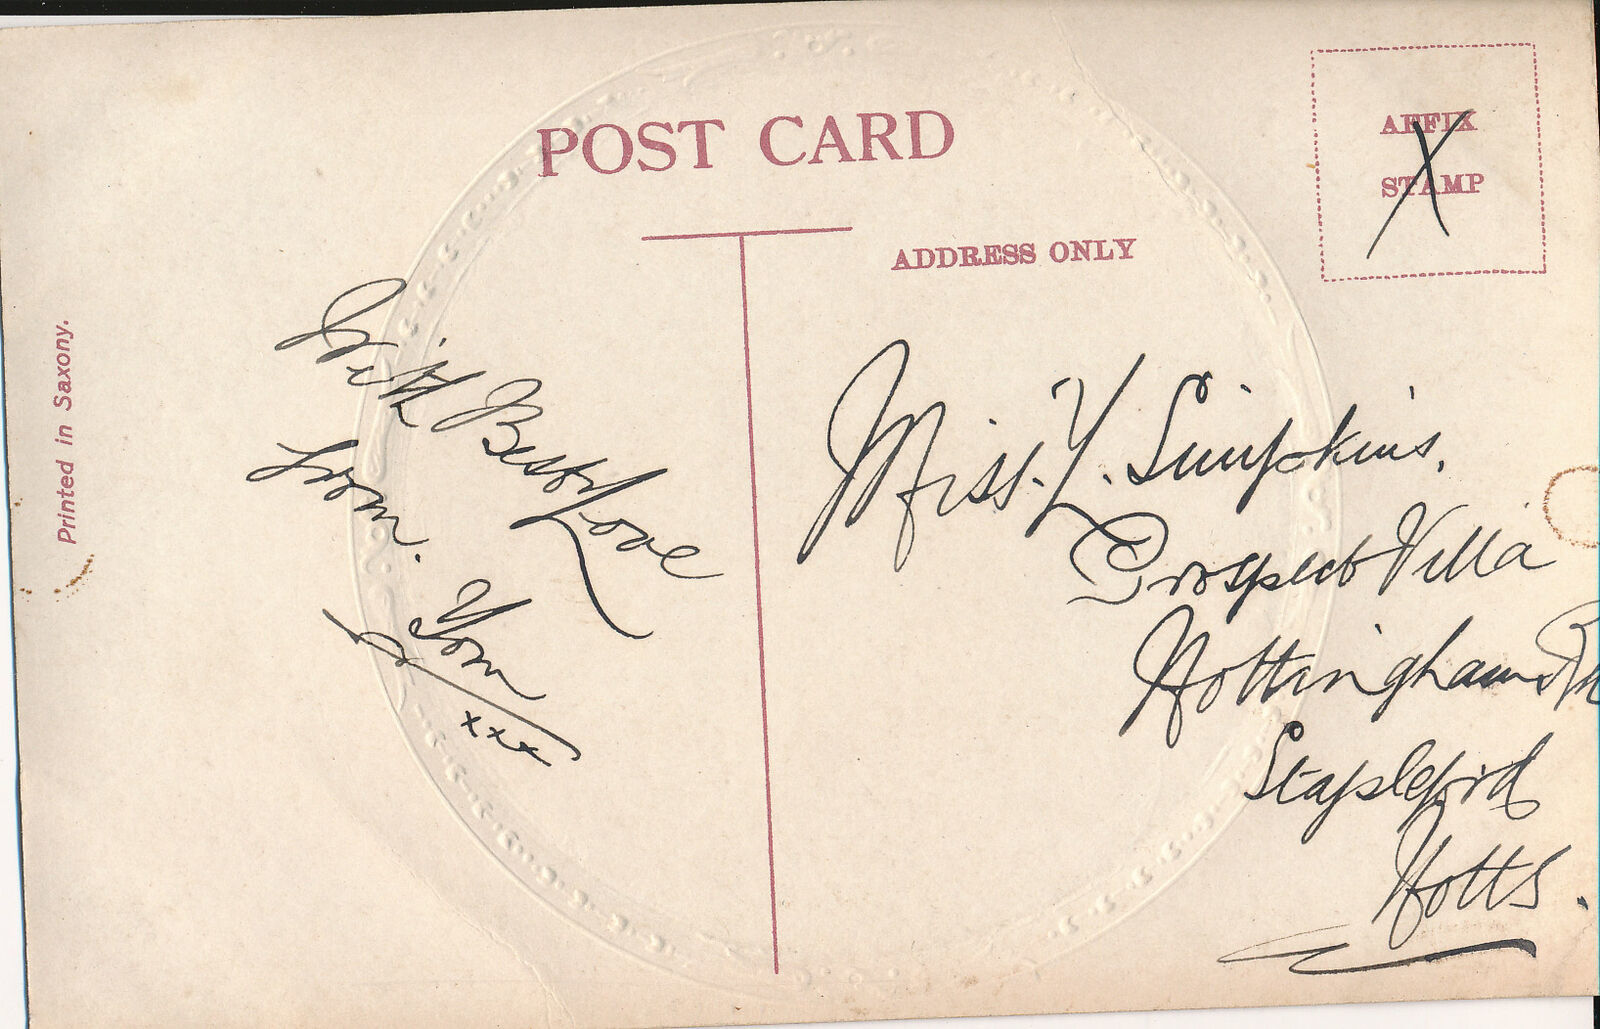 POST CARD
AFFIX
STAMP
ADDRESS ONLY
Printed in Saxony.
With Best Love
from.
Tom
xxx
Miss. L. Simpkins,
Prospect Villa
Nottingham Rd
Stapleford
Notts.